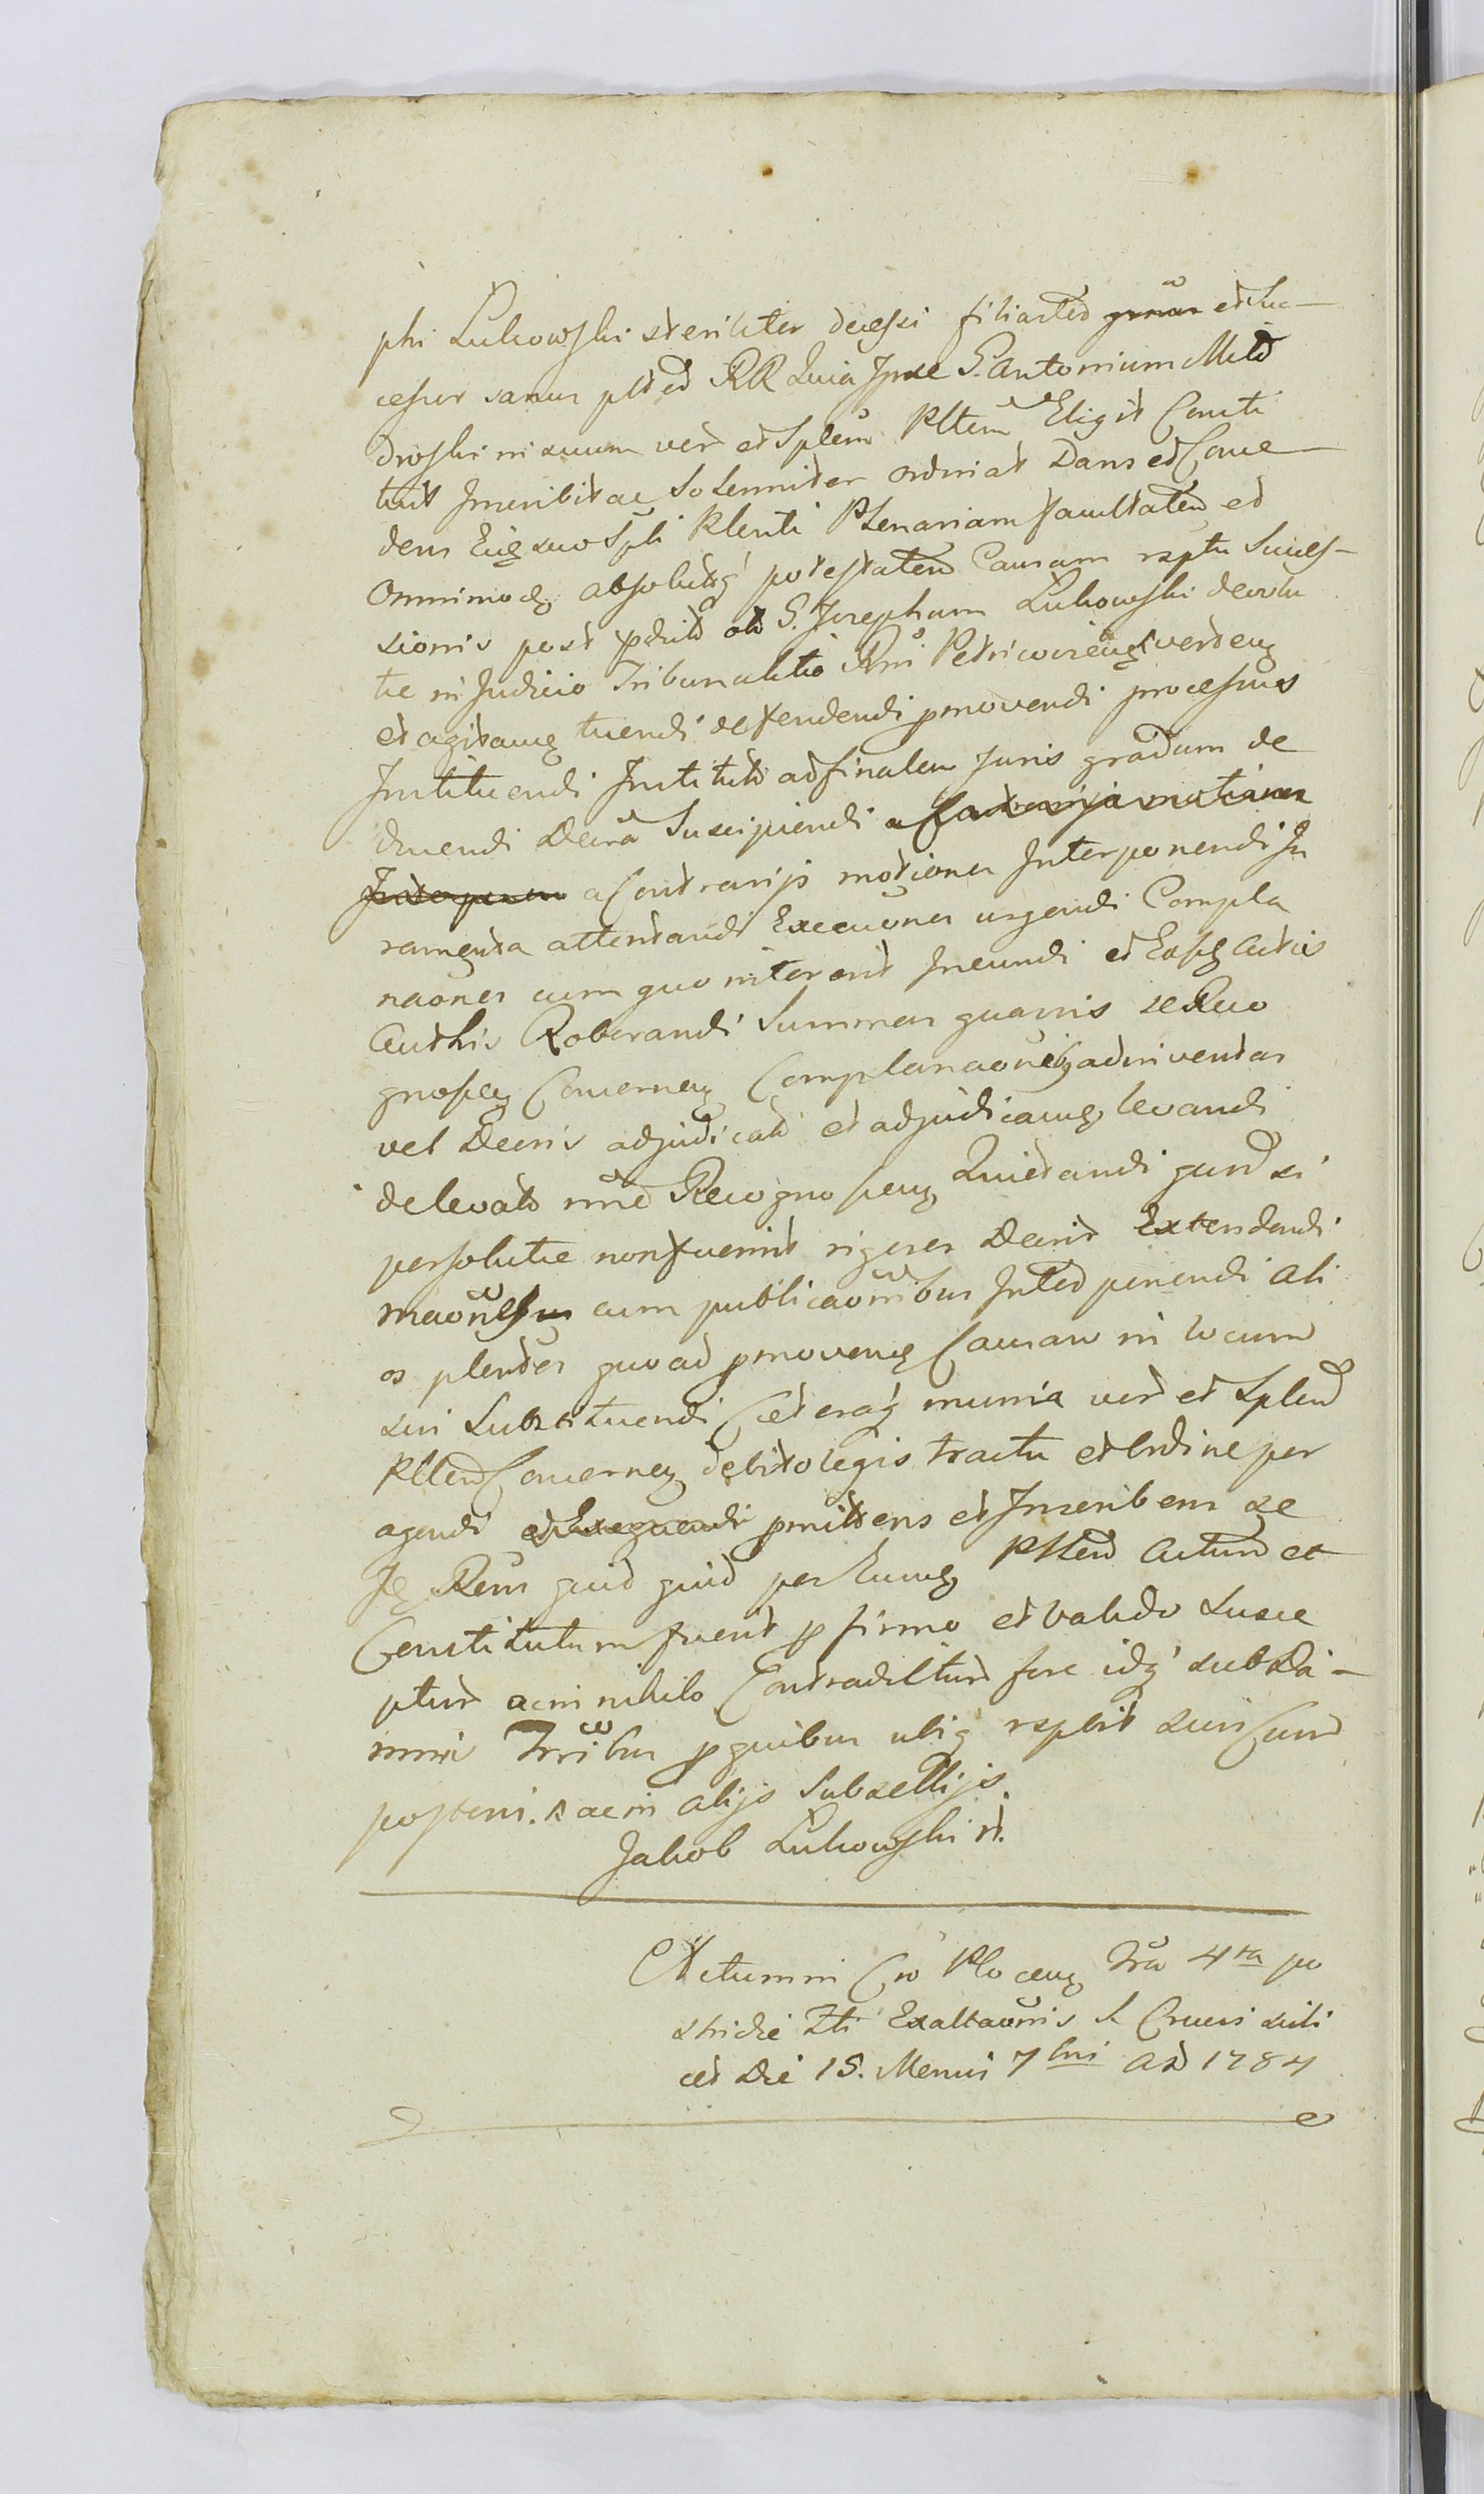 phi Lukowski steriliter decessi filiasted grnar et Suc-
cessor sanus plted RR Quia Ipse G. Antonium Mło
droski in suum ver et Splem Pltem Eligit Consti
tuit Inscribit ac Solenniter ordinat Dans et Conce
dens Eidem suo Spli Plenti Plenariam facultatem et
Omnimodam absolutamq potestatem Causam rsptu Succes-
sionis post pdictd olo G. Josephum Lukowski devolu
tae in Judicio Tribunalitio Rni Petricovien vertens
et agitanq tuendi defendendi pmovendi processus
Instituendi Institutd ad finalem Juris gradum de
ducendi Decra Suscipiendi a Contrarijs motiones
Interponen a Contrarijs motiones Interponendi Ju
ramenta attentandi Execuones urgendi Compla
naones cum quo intererit Ineundi et Easq Actis
Authis Roborandi Summas quasvis se Reco
gnoscen Concernen Complanaonibq adinventas
vel Decris adjudicatd et adjudicanq levandi
de levatd nne Recognoscen Quietandi quod si
persolutae non fuerint rigores Decrit Extendendi
maones cum publicaonibus Inted ponendi Ali
os plentes quo ad pmovenq Causam in locum
sui Substituendi Ceteraq munia ver et Splem
Pltem Concernen debito legis tractu et Ordine per
agendi et Exequendi pmittens et Inscribens se
Is Rens quid quid per Eumq Pltem Actum et
Constitutum fuerit p firmo et valido Susce
pturd ac in nihilo Contradicturd fore idq sub Da-
mni Trribus p quibus ubiq rspbit sui Cum
posteri. s ac in alijs Subsellijs.
Jakob Lukowski rt.
Actum in Cro Plocen Fra 4ta po
stridie Fti Exaltaonis S Crucis scili
cet Die 15. Mensis 7bris AD 1784